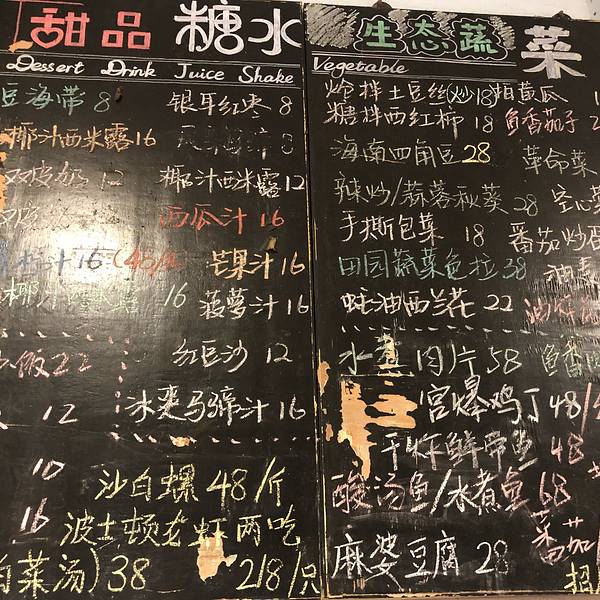 甜品 糖水
Dessert Drink Juice Shake
豆海带 8 银耳红枣 8
椰汁西米露 16
双皮奶 12 椰汁西米露 12
双皮 西瓜汁 16
汁 16 芒果汁 16
椰 16 菠萝汁 16
饭 22 红豆沙 12
12 冰爽马蹄汁 16
10 沙白螺 48/斤
16 波士顿老虾两吃
白菜汤) 38 218/只
生态蔬菜
Vegetable
炝拌土豆丝(炒)18 拍黄瓜
糖拌西红柿 18 鱼香茄子 2
海南四角豆 28 革命菜
辣炒/蒜蓉秋葵 28 空心菜
手撕包菜 18 番茄炒蛋
田园蔬菜色拉 38 油麦
蚝油西兰花 22
水煮肉片 58 鱼香
宫爆鸡丁 48/
干炸鲜带鱼 48
酸汤鱼/水煮鱼 68
番茄
麻婆豆腐 28 招